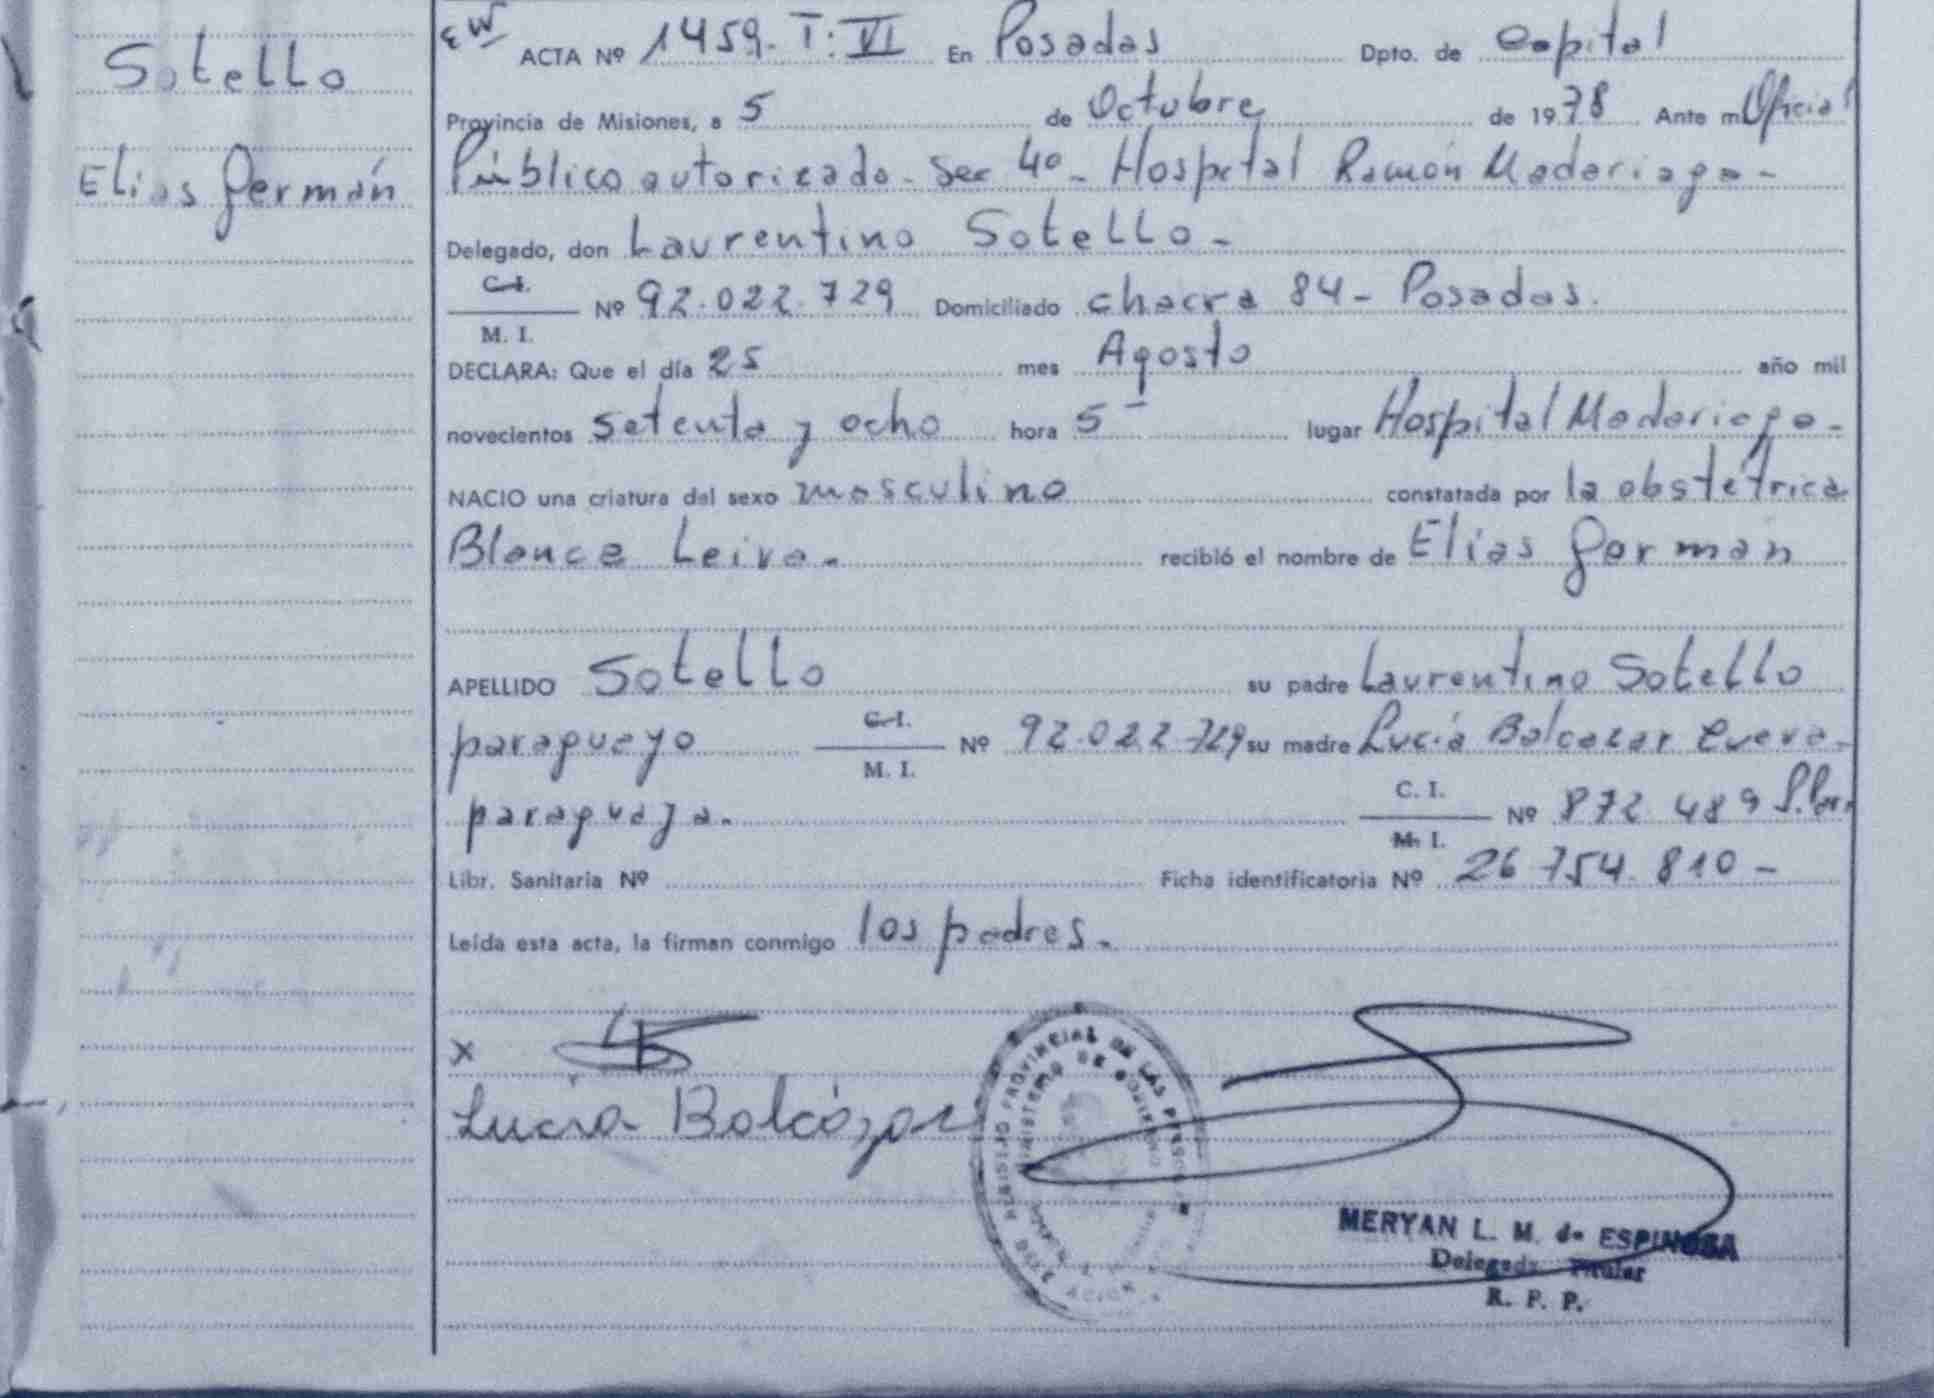 Sotello
Elias Germán
ACTA Nº 1459. T: VI En Posadas Dpto. de Capital
Provincia de Misiones, a 5 de Octubre de 1978 Ante mi Oficial
Público autorizado. Sec 4º - Hospital Ramón Madariaga -
Delegado, don Laurentino Sotello -
C.I.
M. I. Nº 92.022.729 Domiciliado chacra 84 - Posadas.
DECLARA: Que el día 25 mes Agosto año mil
novecientos setenta y ocho hora 5 lugar Hospital Madariaga -
NACIO una criatura del sexo masculino constatada por la obstétrica
Blanca Leiva. recibió el nombre de Elias German
APELLIDO Sotello su padre Laurentino Sotello
paraguayo C.I. M. I. Nº 92.022.729 su madre Lucía Balcazar Cueva -
paraguaya. C. I. M. I. Nº 872 489
Libr. Sanitaria Nº Ficha identificatoria Nº 26 754. 810 -
Leída esta acta, la firman conmigo los padres.
x
Lucia Balcázar
REGISTRO PROVINCIAL DE LAS PERSONAS
MINISTERIO DE GOBIERNO
MERYAN L. M. de ESPINOSA
Delegada Titular
R. P. P.